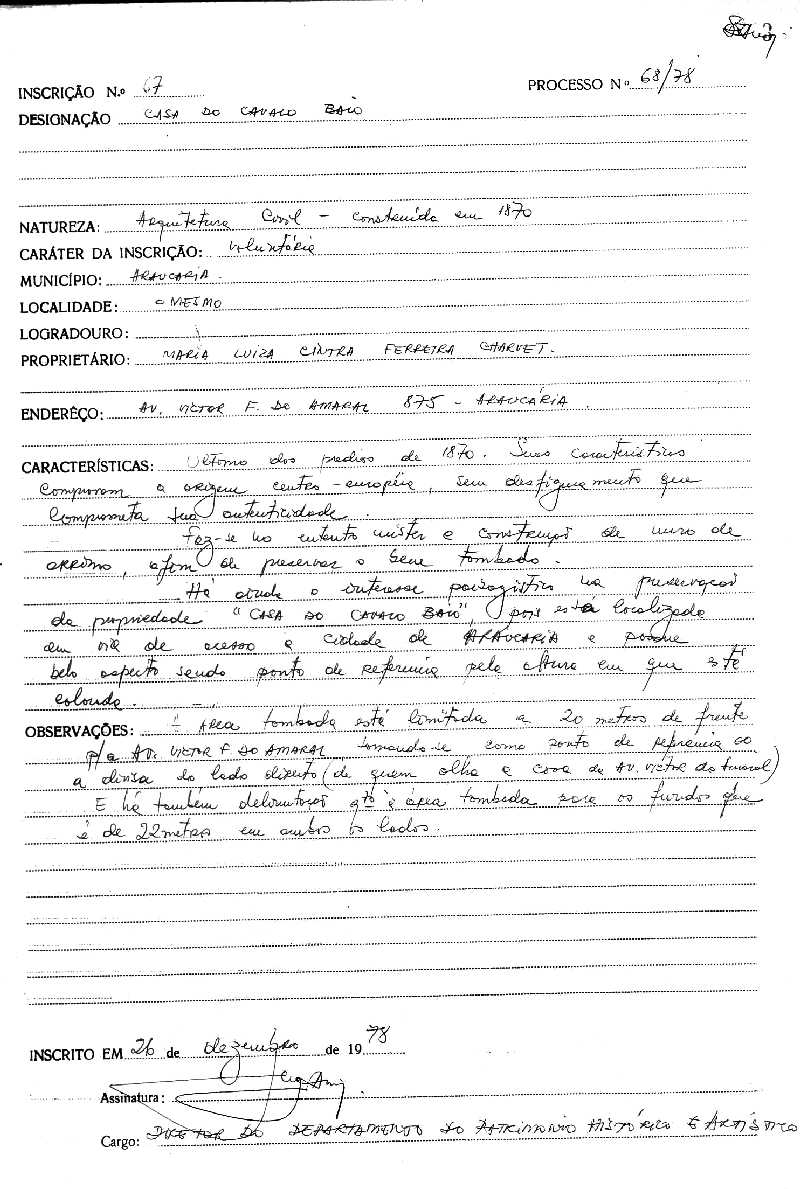 INSCRIÇÃO N.º 67 PROCESSO Nº 68/78
DESIGNAÇÃO CASA DO CAVALO BAIO
NATUREZA: Arquitetura Civil - construída em 1870
CARÁTER DA INSCRIÇÃO: Voluntária
MUNICÍPIO: ARAUCARIA.
LOCALIDADE: O MESMO
LOGRADOURO:
PROPRIETÁRIO: MARIA LUIZA CINTRA FERREIRA CHARVET.
ENDERÊÇO: AV. VICTOR F. DO AMARAL 875 - ARAUCÁRIA.
CARACTERÍSTICAS: Ultimo dos predios de 1870. Suas caracteristicas
comprovam a origem centro-européia, sem desfiguramento que
comprometa sua autenticidade.
Faz-se no entanto mister a construção de muro de
arrimo, afim de preservar o bem tombado.
Há ainda o interesse paisagistico na preservação
da propriedade "CASA DO CAVALO BAIO", pois está localizada
em via de acesso a cidade de ARAUCARIA e possue
belo aspecto sendo ponto de referencia pela altura em que está
OBSERVAÇÕES: - Area tombada está limitada a 20 metros de frente
p/a AV. VICTOR F. DO AMARAL tomando-se como ponto de referencia
a divisa do lado direito (de quem olha a casa da AV. Victor do Amaral)
E há também delimitação qto a área tombada para os fundos que
é de 22 metros em ambos os lados.
INSCRITO EM 26 de dezembro de 1978
Assinatura:
Cargo: DIRETOR DO DEPARTAMENTO DO PATRIMONIO HISTÓRICO E ARTÍSTICO